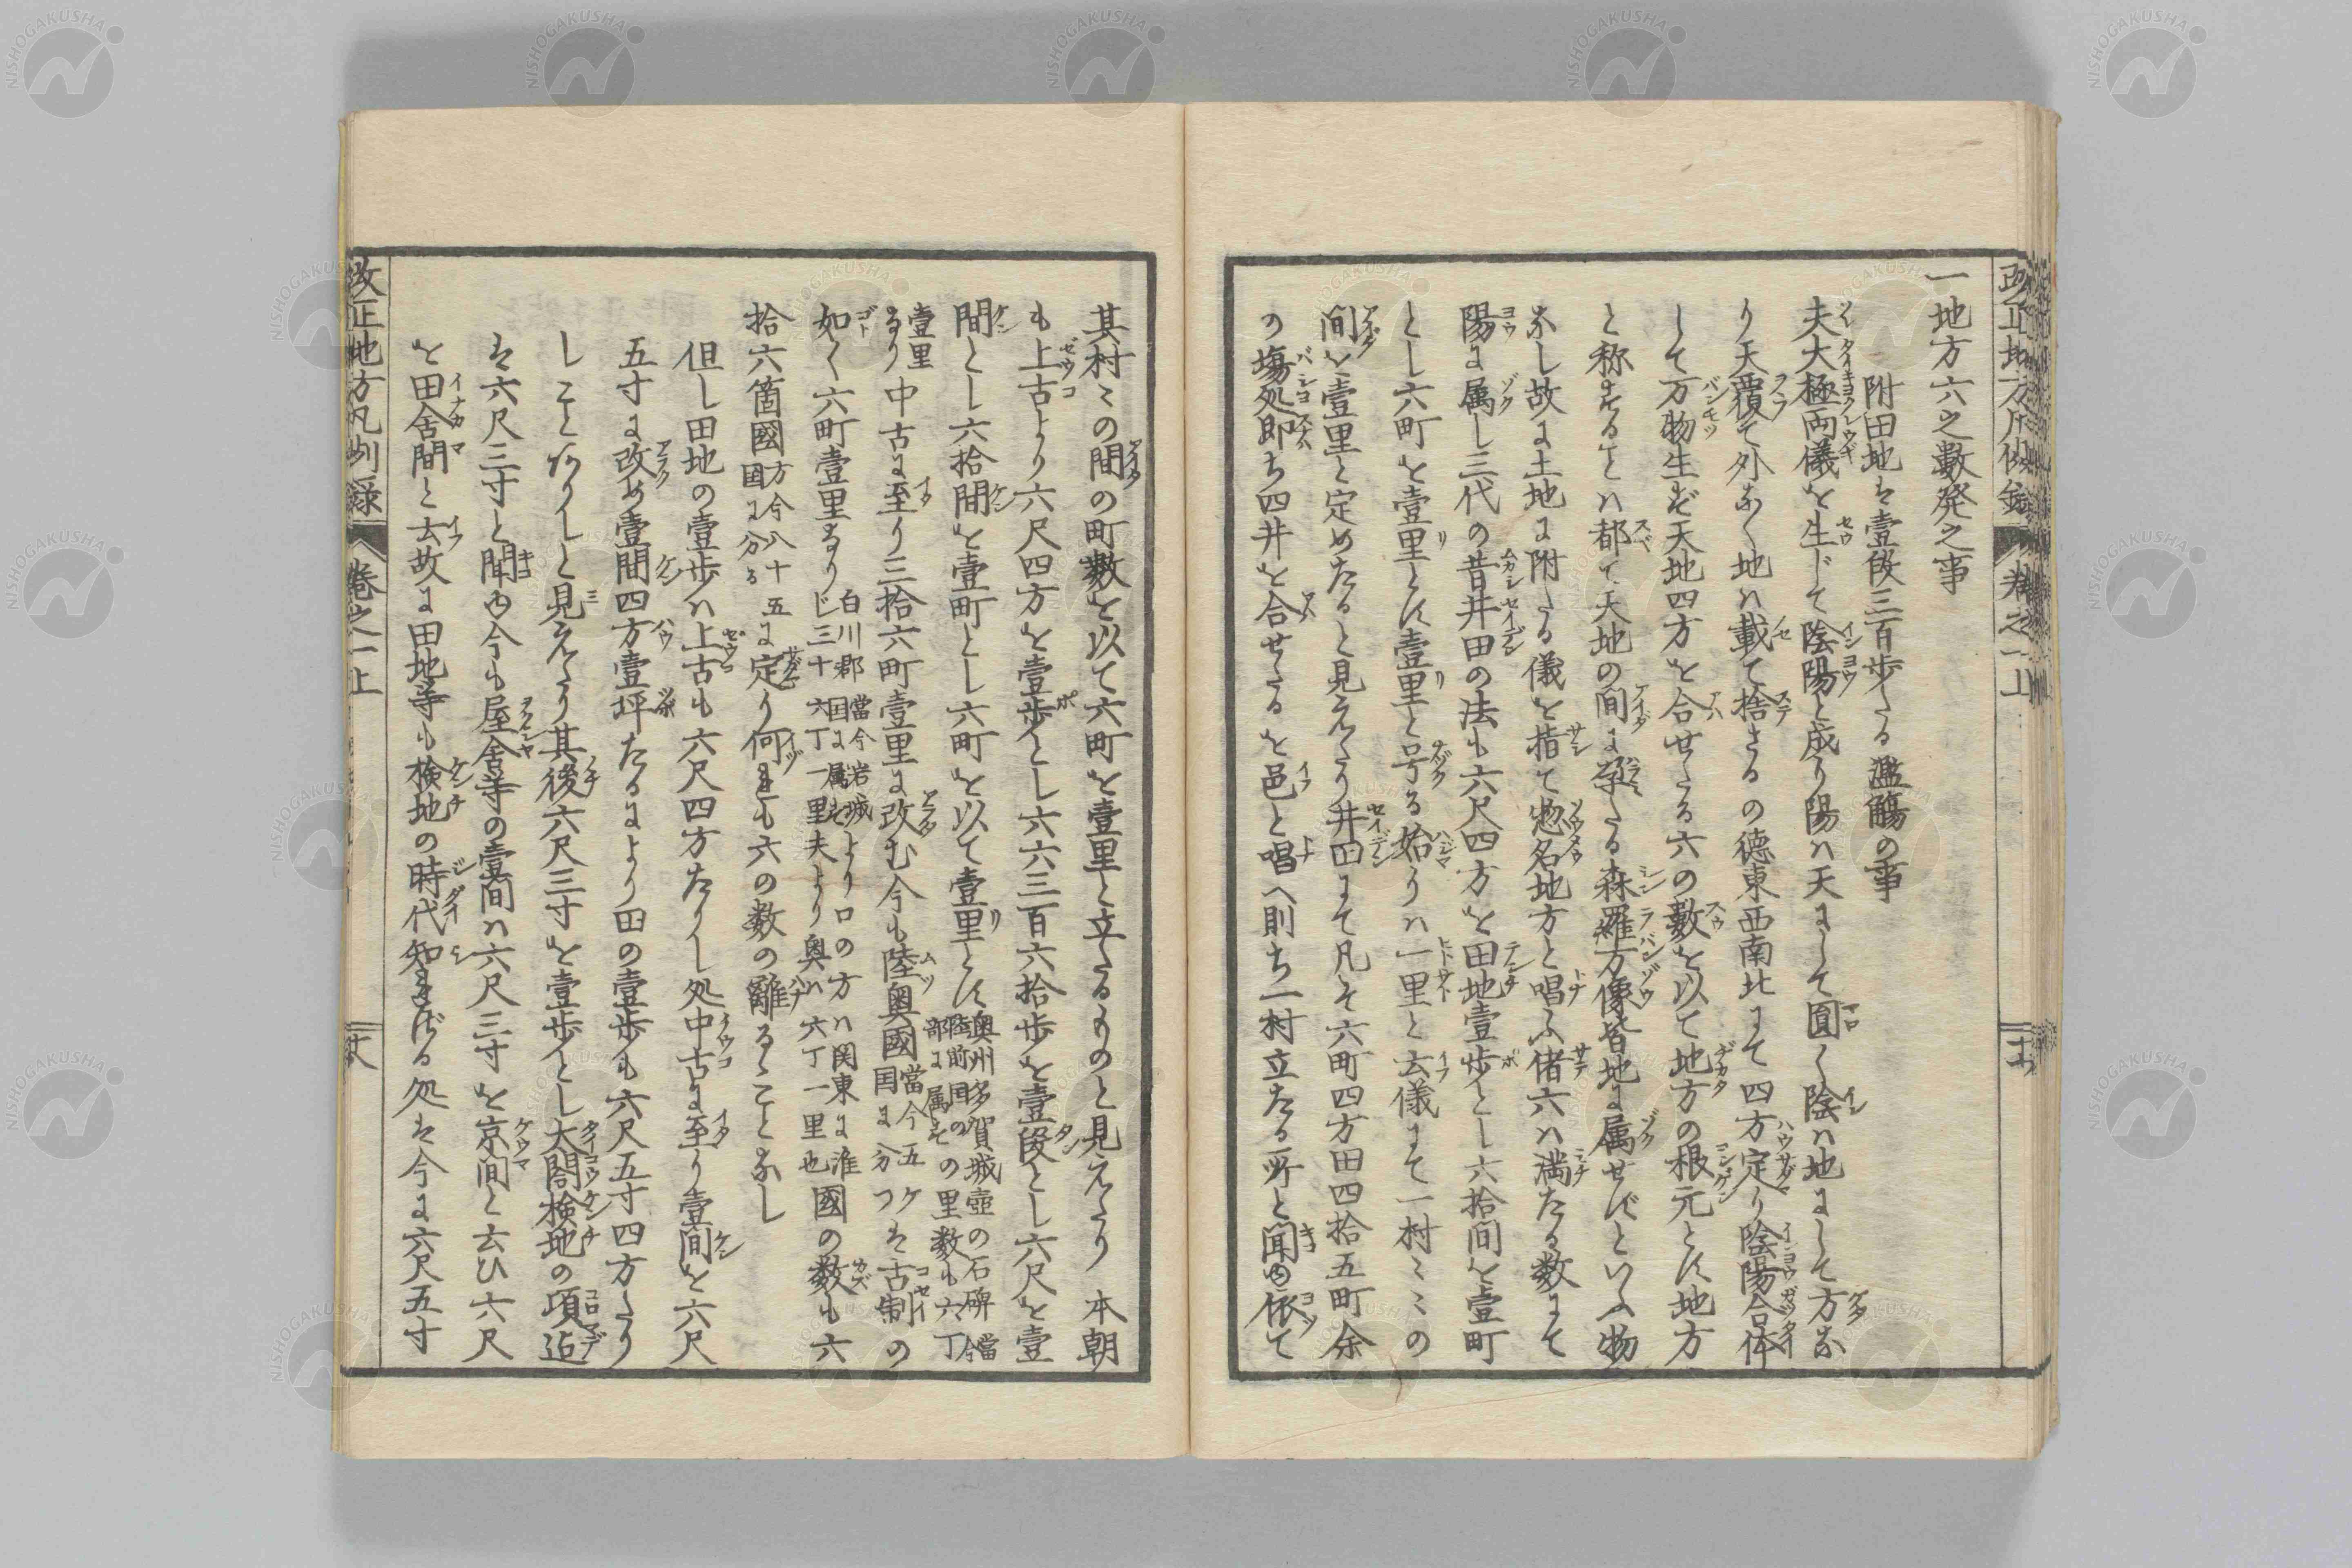 一地方六之數発之事
附田地は壹段三百歩たる濫觴の事
夫大極両儀を生じて陰陽と成り陽ハ天にして圓く陰ハ地にして方な
り天覆て外なく地ハ載て捨さるの徳東西南北にて四方定り陰陽合体
して万物生ず天地四方を合せたる六の數を以て地方の根元とす地方
と称することハ都て天地の間に孕たる森羅万像皆地に属せずといふ物
なし故に土地に附たる儀を指て惣名地方と唱ふ偖六ハ満たる数にて
陽に属し三代の昔井田の法も六尺四方を田地壹歩とし六拾間を壹町
とし六町を壹里とす壹里と号る始りハ一里と云儀にて一村〻〻の
間を壹里と定めたると見えたり井田にて凡そ六町四方田四拾五町余
の塲処即ち四井を合せたるを邑と唱へ則ち一村立たる所と聞ゆ依て
其村〻の間の町數を以て六町を壹里と立たるものと見えたり 本朝
も上古より六尺四方を壹歩とし六六三百六拾歩を壹段とし六尺を壹
間とし六拾間を壹町とし六町を以て壹里とす奥州多賀城壺の石碑當今陸前国の部に属すの里數も六丁
壹里なり中古に至り三拾六町壹里に改む今も陸奥國當今五ケ国に分つは古制の
如く六町壹里なり白川郡當今岩城国に属すより口の方ハ関東に准じ三十六丁一里夫より奥ハ六丁一里也國の数も六
拾六箇國方今八十五国に分るに定り何れも六の数の離るゝことなし
但し田地の壹歩ハ上古も六尺四方たりし処中古に至り壹間を六尺
五寸に改め壹間四方壹坪たるにより田の壹歩も六尺五寸四方たり
しことありしと見えたり其後六尺三寸を壹歩とし大閤検地の項迠
は六尺三寸と聞ゆ今も屋舎等の壹間ハ六尺三寸を京間と云ひ六尺
を田舎間と云故に田地等も検地の時代知れざる処は今に六尺五寸
改正地方凡例録 巻之一上